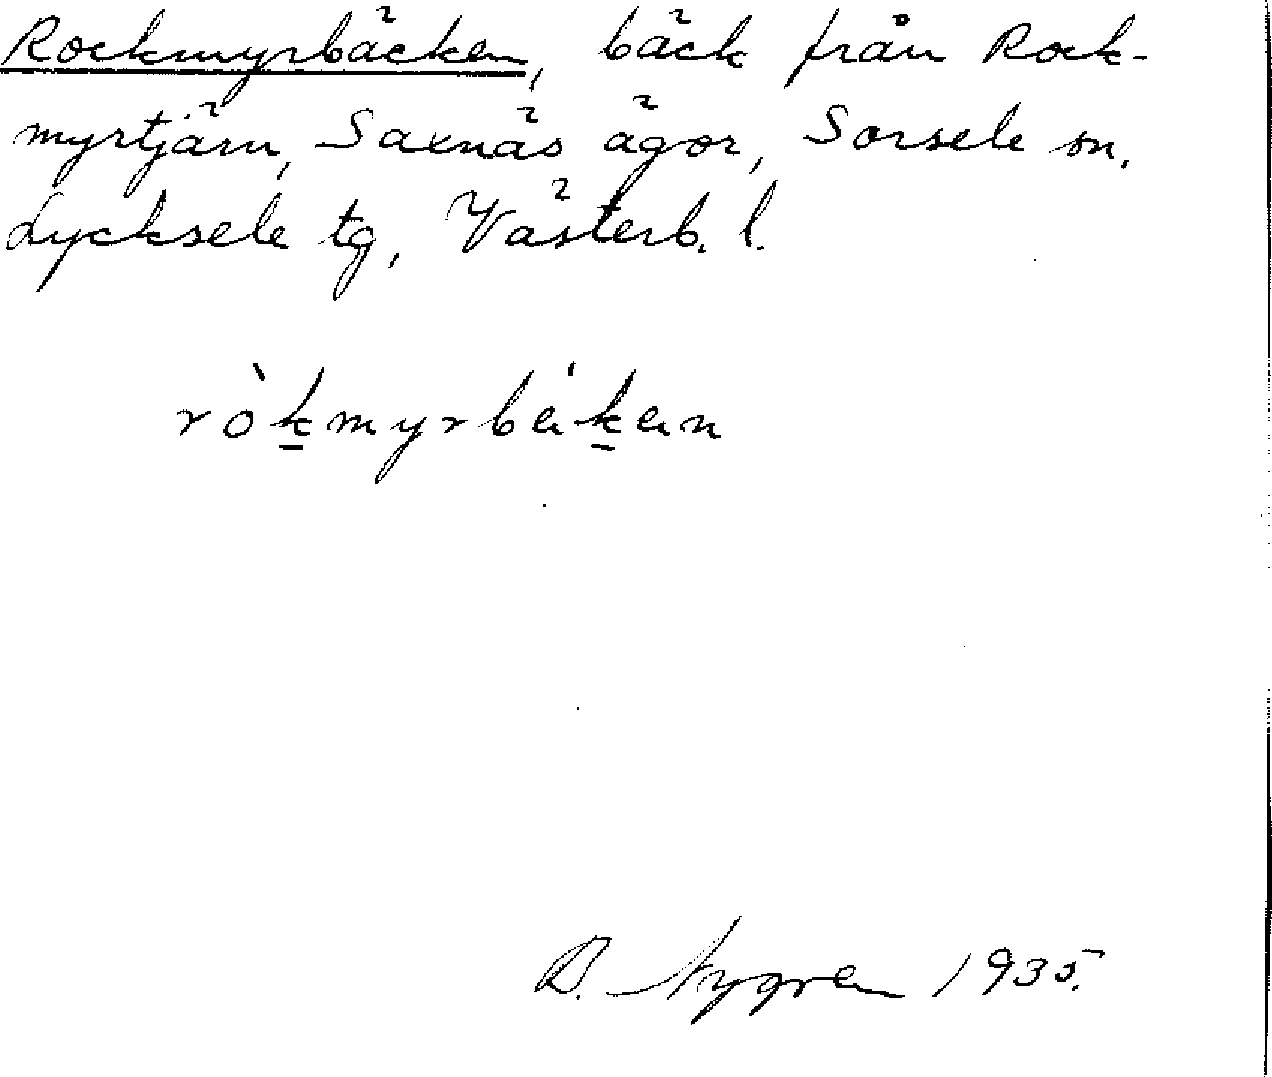 Rockmyrbäcken, bäck från Rock-
myrtjärn, Saxnäs ägor, Sorsele sn,
Lycksele tg, Västerb. l.
ròk̲myrbák̲an
D. Nygren 1935.